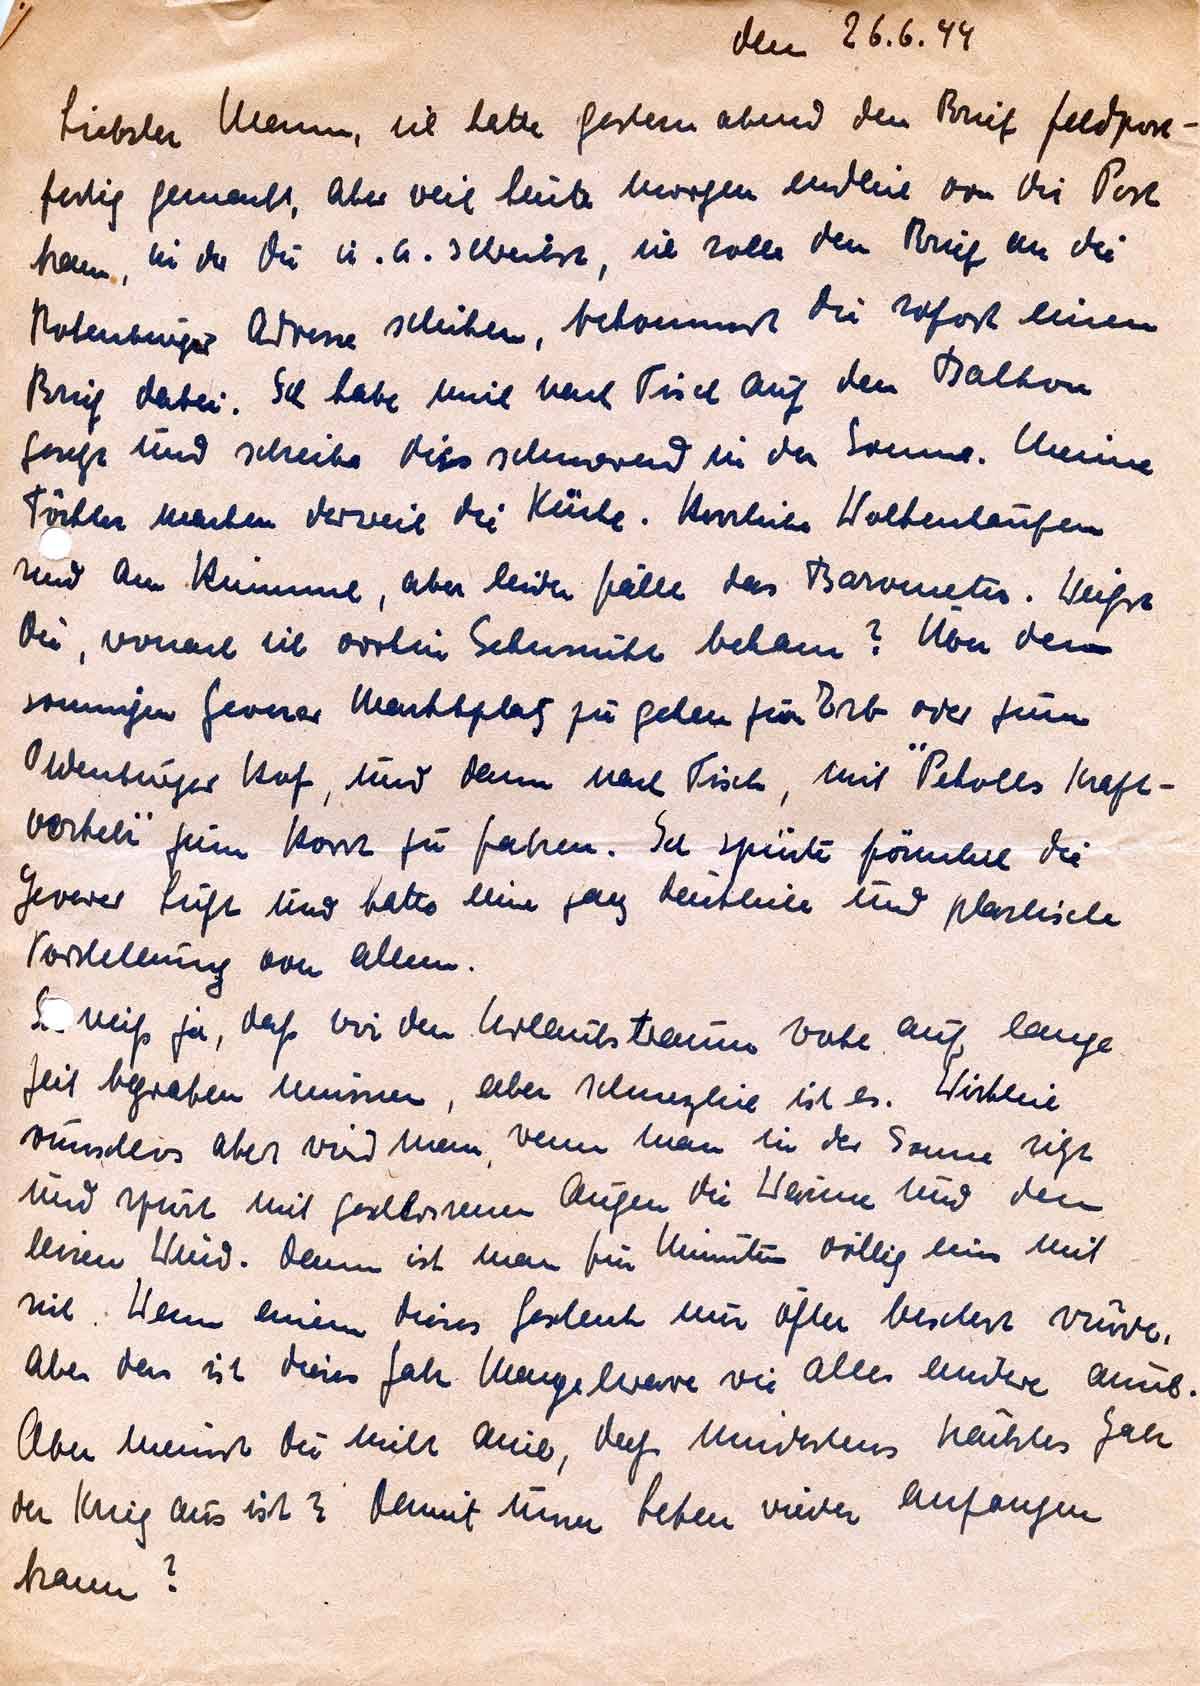 den 26.6.44
Liebster Mann, ich hatte gestern abend den Brief feldpost-
fertig gemacht, aber weil heute morgen endlich von Dir Post
kam, in der Du u. a. schreibst, ich solle den Brief an die
Rotenburger Adresse schicken, bekommst Du sofort einen
Brief dabei. Ich habe mich nach Tisch auf den Balkon
gesetzt und schreibe dies schmorend in der Sonne. Meine
Töchter machen derweil die Küche. Herrliche Wolkenhaufen
sind am Himmel, aber leider fällt das Barometer. Weißt
Du, wonach ich vorhin Sehnsucht bekam? Über den
sonnigen Jeverer Marktplatz zu gehen zum Erb oder zum
Oldenburger Hof, und dann nach Tisch, mit "Petrolls Kraft-
verkehr" zum Horst zu fahren. Ich spürte förmlich die
Jeverer Luft und hatte eine ganz deutliche und plastische
Vorstellung von allem.
weiß ja, daß wir den Urlaubstraum wohl auf lange
Zeit begraben müssen, aber schmerzlich ist es. Wirklich
wunschlos aber wird man, wenn man in der Sonne sitzt
und spürt mit geschlossenen Augen die Wärme und den
leisen Wind. Dann ist man für Minuten völlig eins mit
sich. Wenn einem dieses Geschenk nur öfter beschert würde.
Aber das ist dieses Jahr Mangelware wie alles andere auch.
Aber meinst Du nicht auch, daß mindestens nächstes Jahr
der Krieg aus ist? Damit unser Leben wieder anfangen
kann?